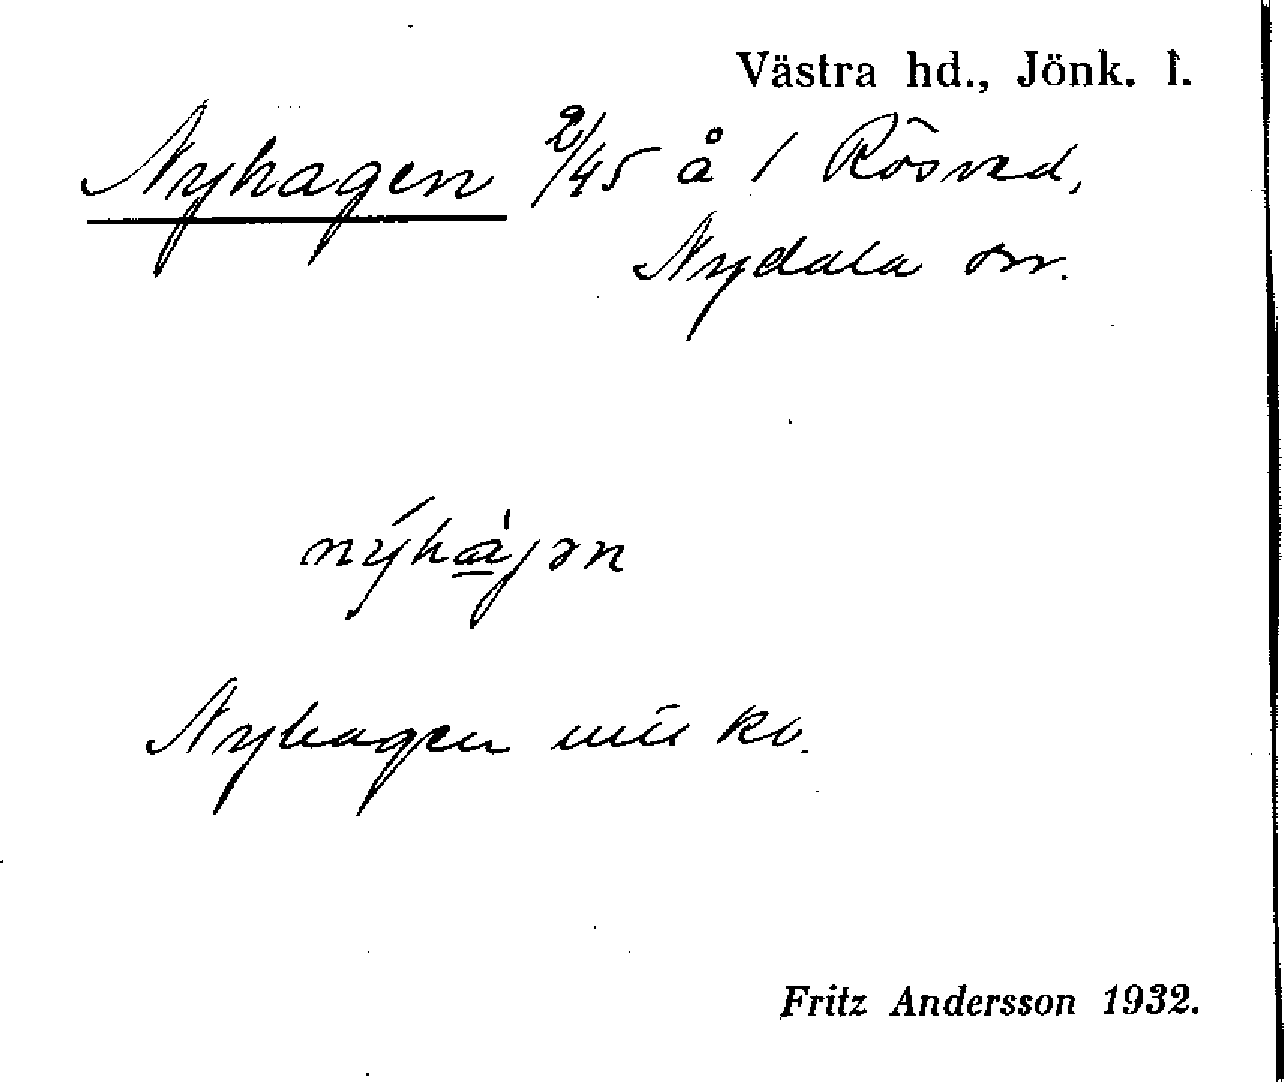 Västra hd., Jönk. l.
Nyhagen 2/45 å 1 Rösved,
Nydala sn.
nýhàjən
Nyhagen
Fritz Andersson 1932.